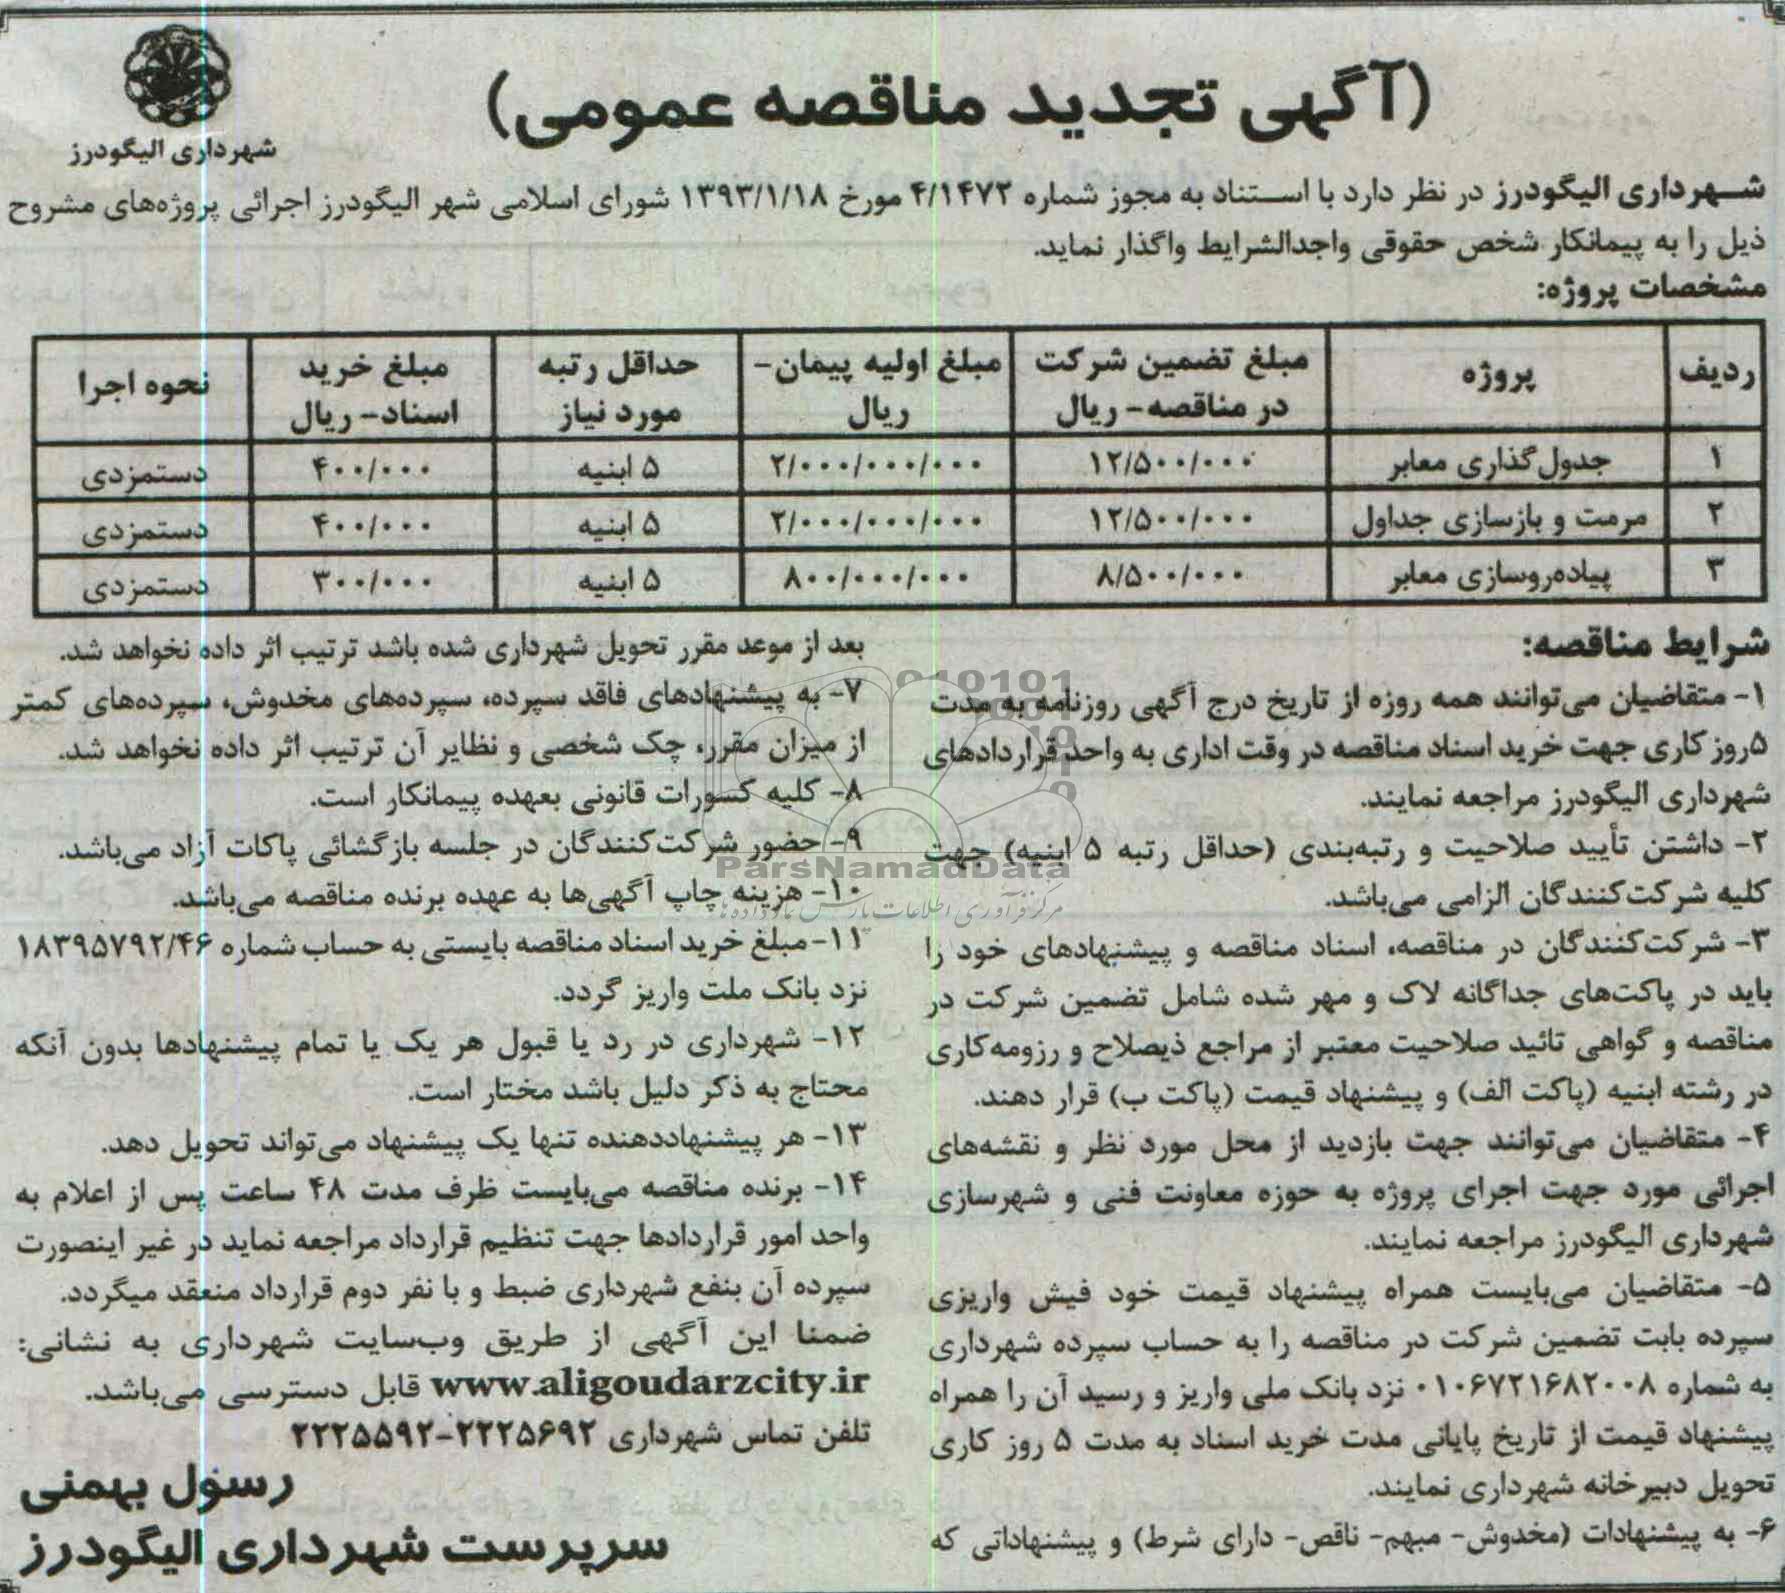 (آگهی تجدید مناقصه عمومی)
شهرداری الیگودرز
شهرداری الیگودرز در نظر دارد با استناد به مجوز شماره ۴/۱۴۷۲ مورخ ۱۳۹۳/۱/۱۸ شورای اسلامی شهر الیگودرز اجرائی پروژه‌های مشروح
ذیل را به پیمانکار شخص حقوقی واجدالشرایط واگذار نماید.
مشخصات پروژه:
ردیف | پروژه | مبلغ تضمین شرکت در مناقصه- ریال | مبلغ اولیه پیمان- ریال | حداقل رتبه مورد نیاز | مبلغ خرید اسناد- ریال | نحوه اجرا
۱ | جدول‌گذاری معابر | ۱۲/۵۰۰/۰۰۰ | ۲/۰۰۰/۰۰۰/۰۰۰ | ۵ ابنیه | ۴۰۰/۰۰۰ | دستمزدی
۲ | مرمت و بازسازی جداول | ۱۲/۵۰۰/۰۰۰ | ۲/۰۰۰/۰۰۰/۰۰۰ | ۵ ابنیه | ۴۰۰/۰۰۰ | دستمزدی
۳ | پیاده‌روسازی معابر | ۸/۵۰۰/۰۰۰ | ۸۰۰/۰۰۰/۰۰۰ | ۵ ابنیه | ۳۰۰/۰۰۰ | دستمزدی
شرایط مناقصه:
۱- متقاضیان می‌توانند همه روزه از تاریخ درج آگهی روزنامه به مدت
۵روز کاری جهت خرید اسناد مناقصه در وقت اداری به واحد قراردادهای
شهرداری الیگودرز مراجعه نمایند.
۲- داشتن تأیید صلاحیت و رتبه‌بندی (حداقل رتبه ۵ ابنیه) جهت
کلیه شرکت‌کنندگان الزامی می‌باشد.
۳- شرکت‌کنندگان در مناقصه، اسناد مناقصه و پیشنهادهای خود را
باید در پاکت‌های جداگانه لاک و مهر شده شامل تضمین شرکت در
مناقصه و گواهی تائید صلاحیت معتبر از مراجع ذیصلاح و رزومه‌کاری
در رشته ابنیه (پاکت الف) و پیشنهاد قیمت (پاکت ب) قرار دهند.
۴- متقاضیان می‌توانند جهت بازدید از محل مورد نظر و نقشه‌های
اجرائی مورد جهت اجرای پروژه به حوزه معاونت فنی و شهرسازی
شهرداری الیگودرز مراجعه نمایند.
۵- متقاضیان می‌بایست همراه پیشنهاد قیمت خود فیش واریزی
سپرده بابت تضمین شرکت در مناقصه را به حساب سپرده شهرداری
به شماره ۰۱۰۶۷۲۱۶۸۲۰۰۸ نزد بانک ملی واریز و رسید آن را همراه
پیشنهاد قیمت از تاریخ پایانی مدت خرید اسناد به مدت ۵ روز کاری
تحویل دبیرخانه شهرداری نمایند.
۶- به پیشنهادات (مخدوش- مبهم- ناقص- دارای شرط) و پیشنهاداتی که
بعد از موعد مقرر تحویل شهرداری شده باشد ترتیب اثر داده نخواهد شد.
۷- به پیشنهادهای فاقد سپرده، سپرده‌های مخدوش، سپرده‌های کمتر
از میزان مقرر، چک شخصی و نظایر آن ترتیب اثر داده نخواهد شد.
۸- کلیه کسورات قانونی بعهده پیمانکار است.
۹- حضور شرکت‌کنندگان در جلسه بازگشائی پاکات آزاد می‌باشد.
۱۰- هزینه چاپ آگهی‌ها به عهده برنده مناقصه می‌باشد.
۱۱- مبلغ خرید اسناد مناقصه بایستی به حساب شماره ۱۸۳۹۵۷۹۲/۴۶
نزد بانک ملت واریز گردد.
۱۲- شهرداری در رد یا قبول هر یک یا تمام پیشنهادها بدون آنکه
محتاج به ذکر دلیل باشد مختار است.
۱۳- هر پیشنهاددهنده تنها یک پیشنهاد می‌تواند تحویل دهد.
۱۴- برنده مناقصه می‌بایست ظرف مدت ۴۸ ساعت پس از اعلام به
واحد امور قراردادها جهت تنظیم قرارداد مراجعه نماید در غیر اینصورت
سپرده آن بنفع شهرداری ضبط و با نفر دوم قرارداد منعقد میگردد.
ضمنا این آگهی از طریق وب‌سایت شهرداری به نشانی:
www.aligoudarzcity.ir قابل دسترسی می‌باشد.
تلفن تماس شهرداری ۲۲۲۵۶۹۲-۲۲۲۵۵۹۲
رسول بهمنی
سرپرست شهرداری الیگودرز
ParsNamadData
مرکز فرآوری اطلاعات پارس نماد داده‌ها